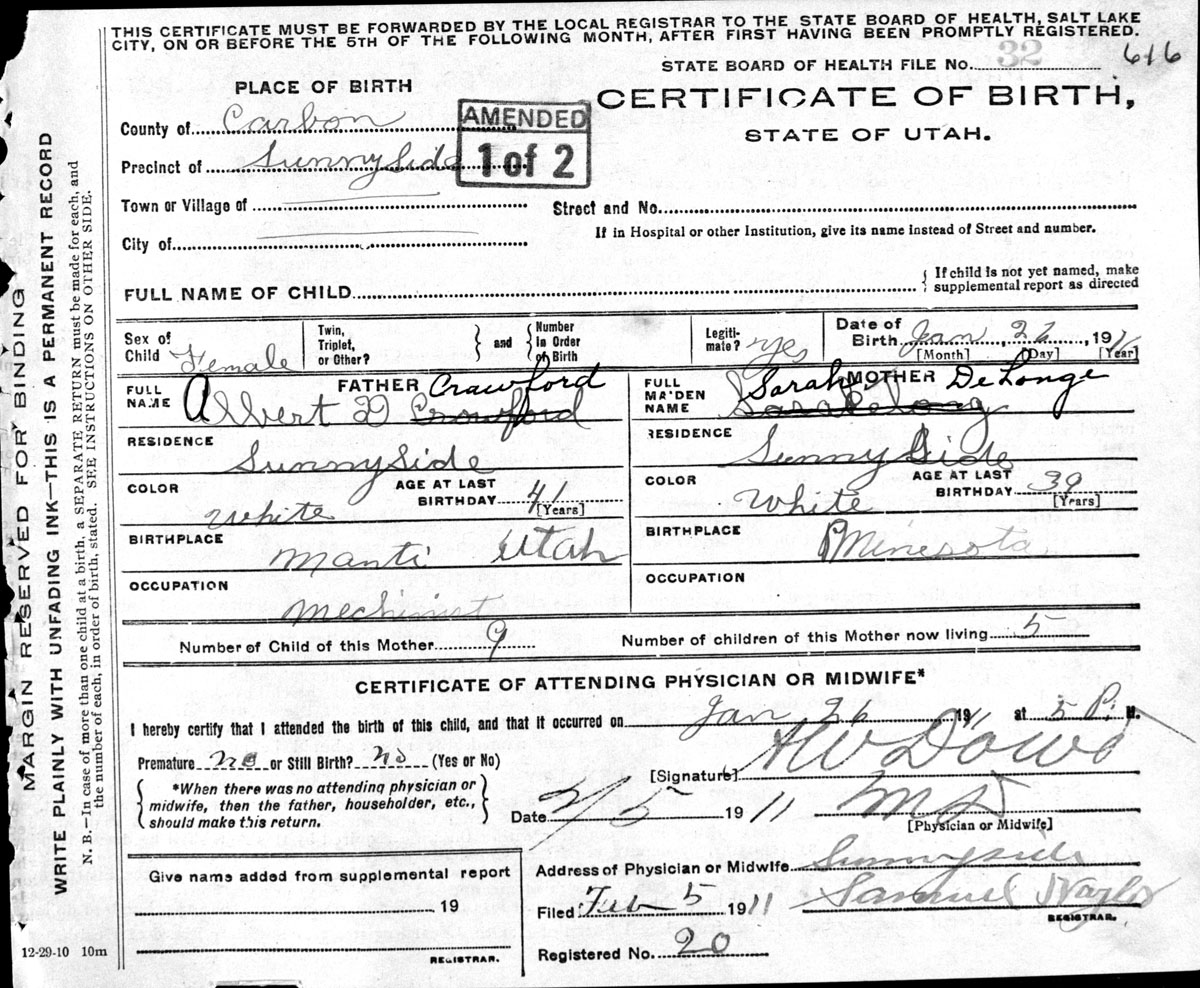 THIS CERTIFICATE MUST BE FORWARDED BY THE LOCAL REGISTRAR TO THE STATE BOARD OF HEALTH, SALT LAKE
CITY, ON OR BEFORE THE 5TH OF THE FOLLOWING MONTH, AFTER FIRST HAVING BEEN PROMPTLY REGISTERED.
STATE BOARD OF HEALTH FILE No. 32 616
PLACE OF BIRTH
CERTIFICATE OF BIRTH,
STATE OF UTAH.
County of Carbon
AMENDED
1 of 2
Precinct of Sunnyside
Town or Village of
Street and No.
City of
If in Hospital or other Institution, give its name instead of Street and number.
FULL NAME OF CHILD
{ If child is not yet named, make
supplemental report as directed
Sex of Child Female
Twin, Triplet, or Other?
and
Number In Order of Birth
Legiti-mate? yes
Date of Birth Jan, 26, 1911
[Month] [Day] [Year]
FULL NAME FATHER Crawford
Albert D Crawford
FULL MAIDEN NAME MOTHER
Sarah DeLonge
RESIDENCE
Sunnyside
RESIDENCE
Sunny Side
COLOR White
AGE AT LAST BIRTHDAY 41 [Years]
COLOR White
AGE AT LAST BIRTHDAY 39 [Years]
BIRTHPLACE
Manti Utah
BIRTHPLACE
Minesota
OCCUPATION
Mechinist
OCCUPATION
Number of Child of this Mother 9
Number of children of this Mother now living 5
CERTIFICATE OF ATTENDING PHYSICIAN OR MIDWIFE*
I hereby certify that I attended the birth of this child, and that it occurred on Jan 26 1911 at 5 P. M.
Premature no or Still Birth? no (Yes or No)
[Signature] H W Dowd
{ *When there was no attending physician or
midwife, then the father, householder, etc.,
should make this return. }
Date 2/5 1911
M D
[Physician or Midwife]
Give name added from supplemental report
19
REGISTRAR.
Address of Physician or Midwife Sunnyside
Filed Feb 5 1911
Samuel Naylor
REGISTRAR.
Registered No. 20
12-29-10 10m
MARGIN RESERVED FOR BINDING
WRITE PLAINLY WITH UNFADING INK—THIS IS A PERMANENT RECORD
N. B.—In case of more than one child at a birth, a SEPARATE RETURN must be made for each, and
the number of each, in order of birth, stated. SEE INSTRUCTIONS ON OTHER SIDE.